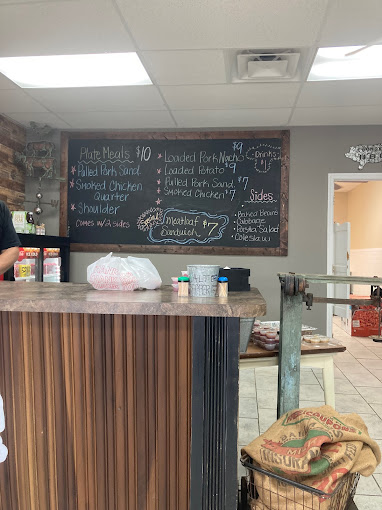 Plate Meals $10
* Pulled Pork Sand.
* Smoked Chicken
Quarter
* Shoulder
comes w/2 sides
* Loaded Pork Nacho $9
* Loaded Potato $9
* Pulled Pork Sand. $7
* Smoked Chicken $7
Special
Meatloaf
Sandwich $7
Drinks
$1
Sides
• Baked Beans
• Cabbage
• Potato Salad
• Coleslaw